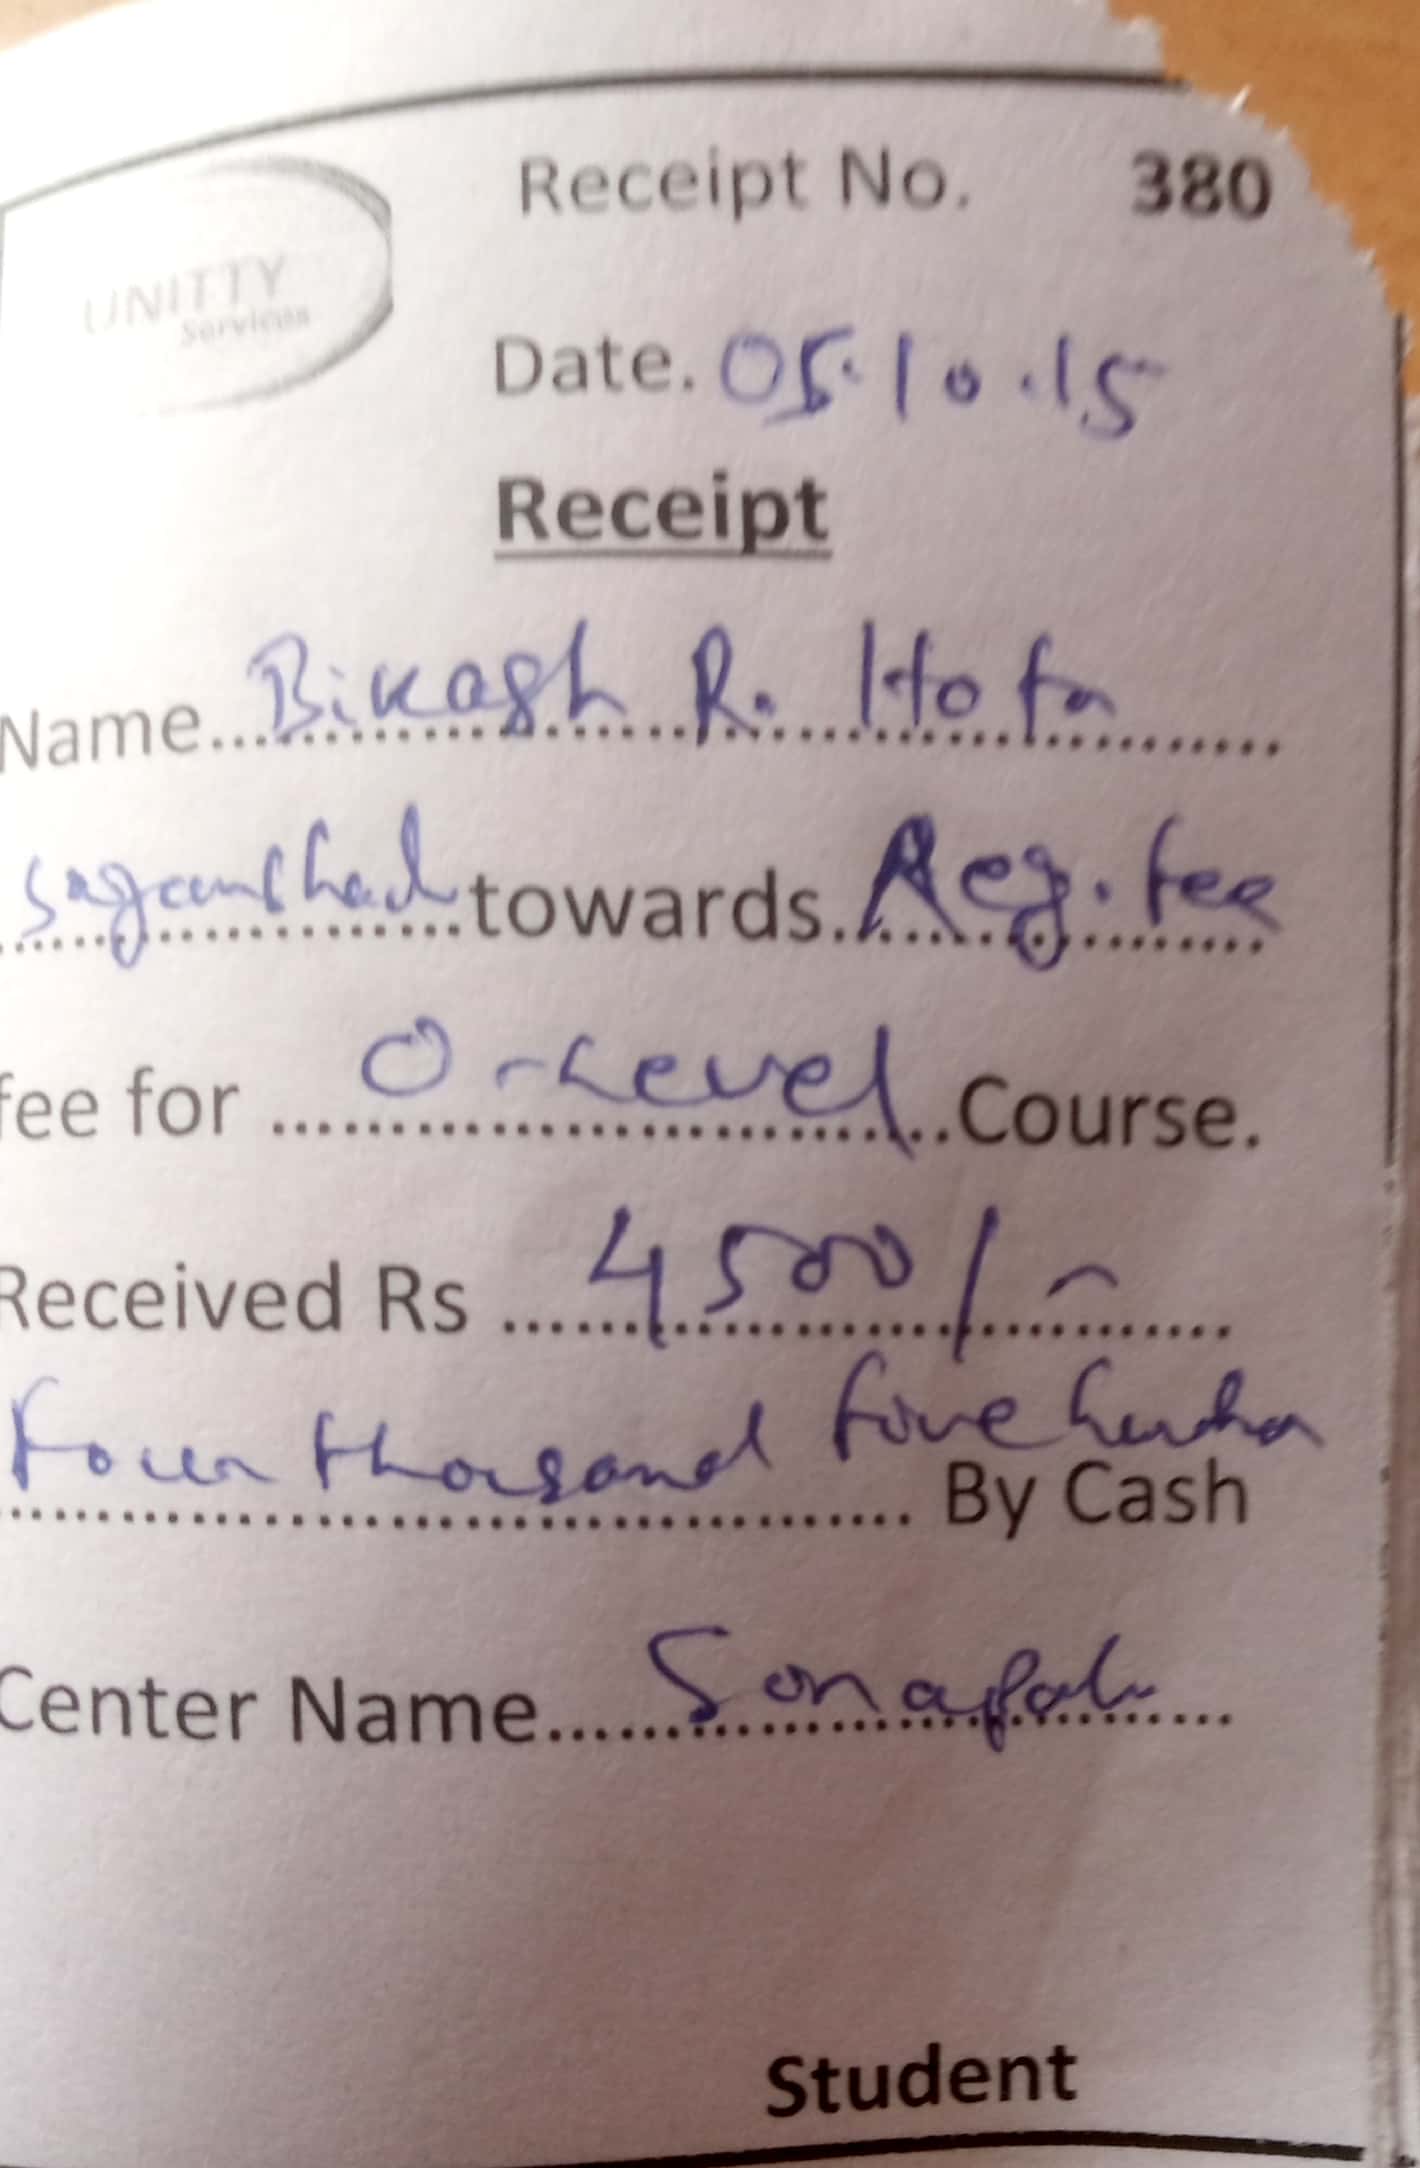 Receipt No. 380
UNITTY
Services
Date. 05.10.15
Receipt
Name Bikash R. Hota
towards Reg. fee
fee for O-Level Course.
Received Rs 4500/-
Four thousand five
By Cash
Center Name
Student